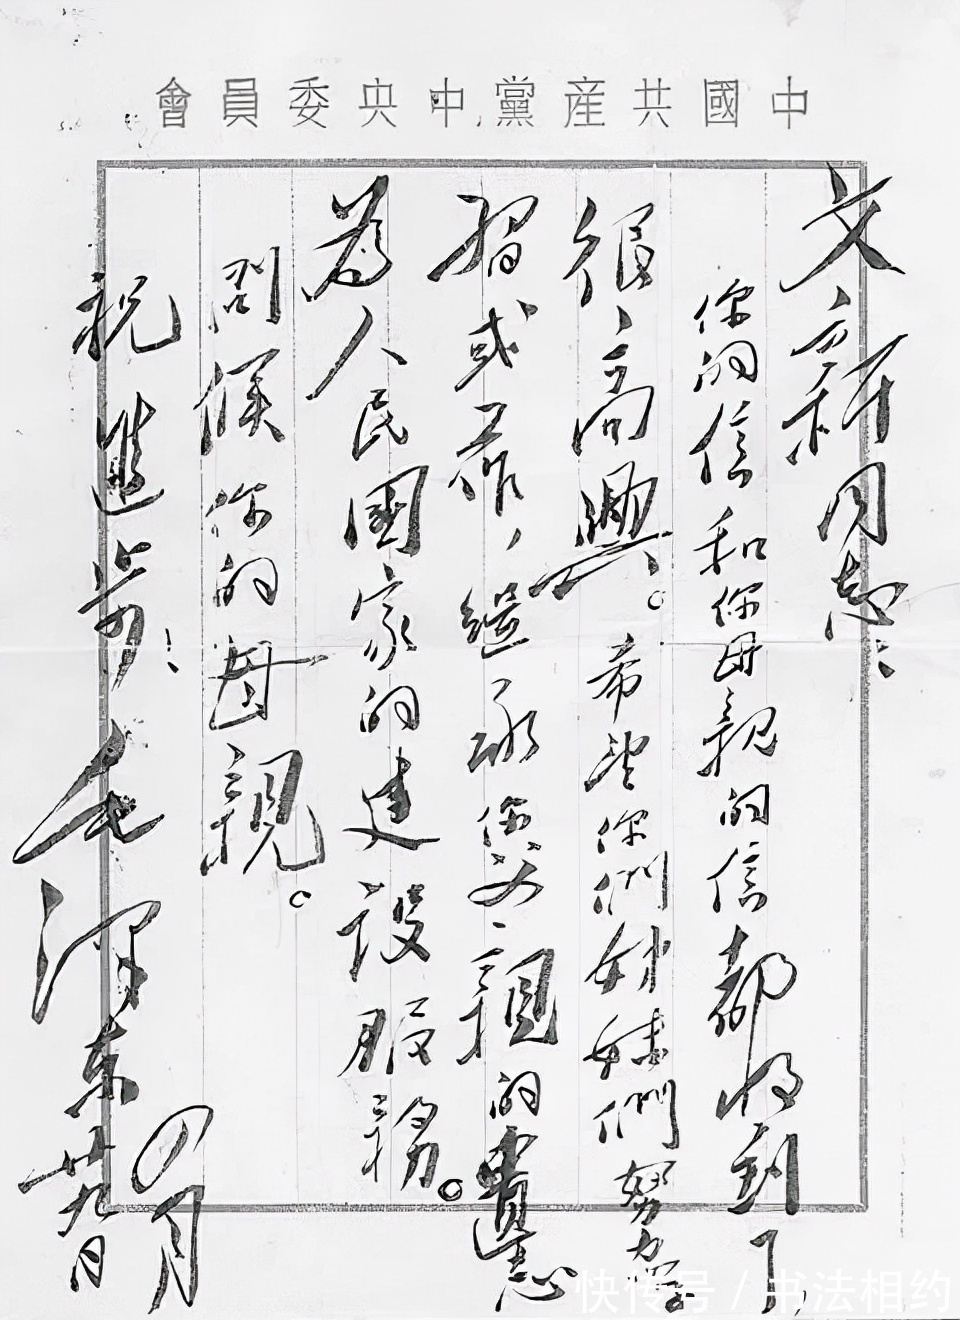 會員委央中黨産共國中
文新同志：
你的信和你母親的信都收到了，
很高興。希望你們姊妹們努力學
習或工作，繼承你父親的遺志，
為人民國家的建設服務。
問候你的母親。
祝進步！
毛澤東
四月
廿九日
快传号/书法相约